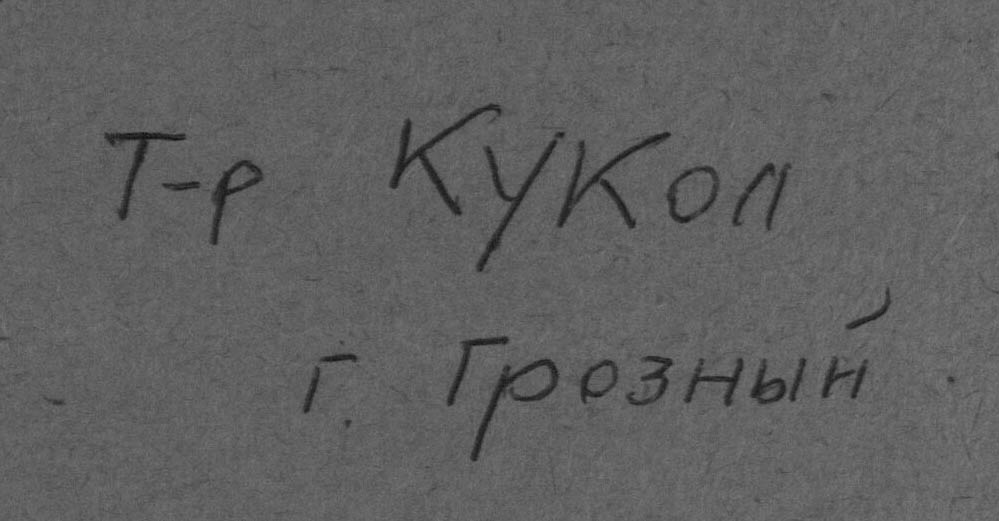 Т-р Кукол
г. Грозный